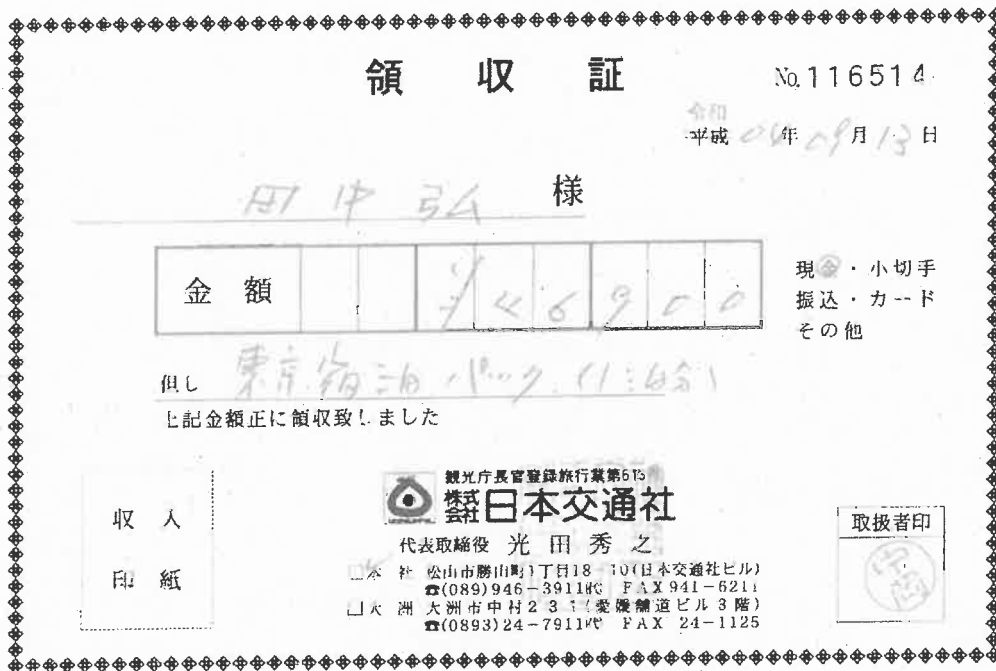 領収証
No.116514
令和
平成 04年 09月 13日
田中 弘 様
金額 ¥46900
現金・小切手
振込・カード
その他
但し 東京宿泊パック (1泊分)
上記金額正に領収致しました
収入
印紙
観光庁長官登録旅行業第615
株式会社 日本交通社
代表取締役 光田秀之
□本社 松山市勝山町1丁目18-10(日本交通社ビル)
☎(089)946-3911代 FAX 941-6211
□大洲 大洲市中村231(愛媛舗道ビル3階)
☎(0893)24-7911代 FAX 24-1125
取扱者印